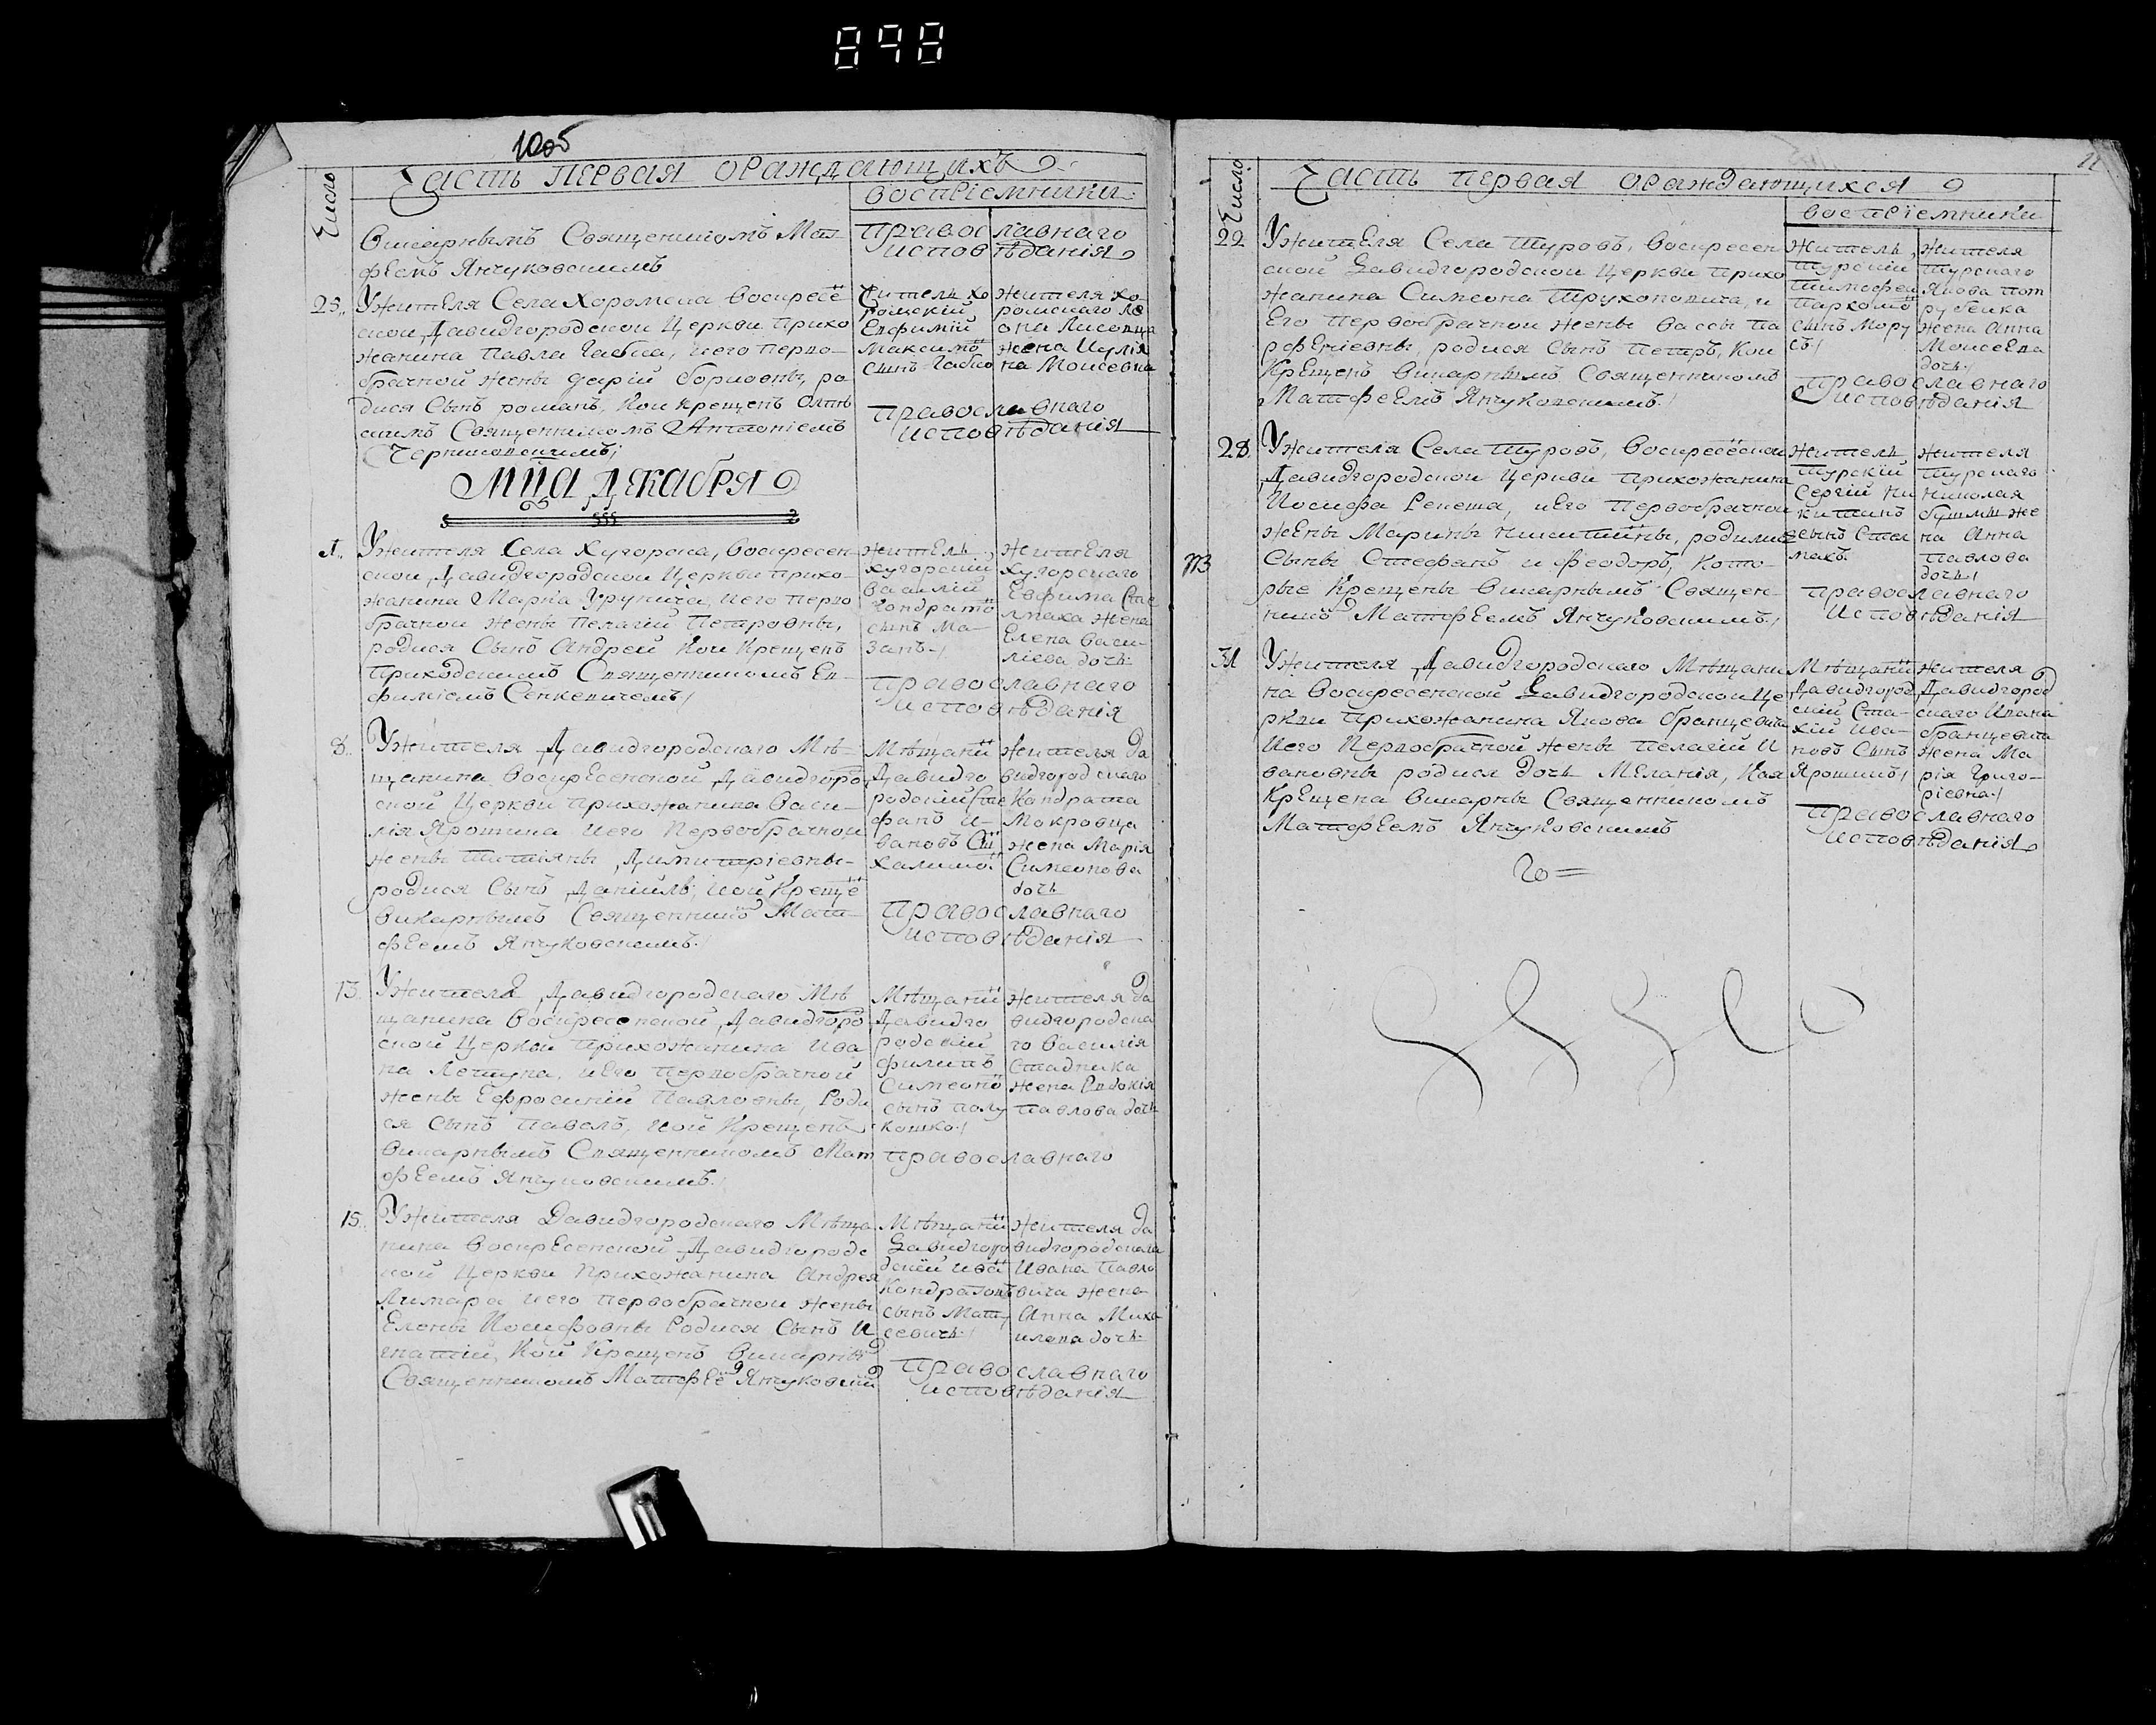 898
1005
Часть первая оражdающихъ
Число
воспріемники
Викарнымъ Священникомъ Мат-
феемъ Янчуковскимъ
православнаго
исповѣданія
25. У жителя Села Хоромска Воскресе
ской Давидгородской Церкви прихо
жанина Павла Габца, и его перво-
брачной жены Дарій Борисовны, ро-
дися Сынъ романъ, кои крещенъ
скимъ Священникомъ Антоніемъ
Житель хо
ромскій
Евфимій
Максимо
сынъ
жителя хо-
ромскаго Ле
она Лисовца
жена Иулія
на Моисевна
православнаго
исповѣданія
Мца Декабря
1. У жителя Села Хугорска, Воскресен
ской Давидгородской Церкви прихо-
жанина Марка, и его перво
брачной жены Пелагій Петровны,
родися Сынъ Андрей кои крещенъ
приходскимъ Священникомъ Ев-
фиміемъ Сенкевичемъ
житель
хугорскій
Василій
Кондрато
сынъ Ма-
занъ
жителя
хугорскаго
Евфима Сте
лмаха жена
Елена Васи-
ліева дочь
православнаго
исповѣданія
8. У жителя Давидгородскаго Мѣ-
щанина Воскресенской Давидгоро
ской Церкви прихожанина Васи-
лія Ярошика и его Первобрачной
жены Татіяны Димитріевны-
родися Сынъ Даніилъ, кой Креще
викарнымъ Священнико Мат-
феемъ Янчуковскимъ
Мѣщани
Давидго
родскій Сте
фанъ И-
вановъ
жителя Да
видгородскаго
Кондрата
Мокровца
жена Марія
Симеонова
дочь
православнаго
исповѣданія
13. У жителя Давидгородскаго Мѣ
щанина Воскресенской Давидгоро
ской Церкви прихожанина Ива
на, и его первобрачной
жены Ефросиніи Павловны, Роди
ся Сынъ Павелъ, кой Крещенъ
викарнымъ Священникомъ Мат
феемъ Янчуковскимъ
Мѣщани
Давидго
родскій
филипъ
Симеоно
сынъ Полу
кошко
жителя Да
видгородска
го Василія
Стадника
жена Евдокія
павлова дочь
православнаго
15. У жителя Давидгородскаго Мѣща
нина Воскресенской Давидгородс
кой Церкви Прихожанина Андрея
Лимара и его первобрачной жены
Елены Иосифовны Родися Сынъ И
гнатій, кой Крещенъ Викарны
Священникомъ Матфе Янчуковски
Мѣщани
Давидгоро
дскій Ива
Кондратовъ
сынъ Мату
севичъ
жителя Да
видгородскаго
Ивана Павло
вича жена
Анна Миха
илова дочь
православнаго
исповѣданія
Часть первая ораждающихся
Число
воспріемники
22 У жителя Села Туровъ, Воскресен
ской Давидгородской Церкви прихо
жанина Симеона Трухоновича, и
его первобрачной жены Вассы Па
рфеніевны, родися Сынъ Петръ, кои
Крещенъ Викарнымъ Священникомъ
Матфеемъ Янчуковскимъ
житель
турскій
Тимофей
Пархомо
сынъ Мору
съ
жителя
турскаго
Якова пот
рубейка
жена Анна
Моисеева
дочь
православнаго
исповѣданія
28. У жителя Села Туровъ, Воскресенской
Давидгородской Церкви прихожанина
Иосифа Репеша, и его Первобрачной
жены Марины Никитины, родились
Сыны Стефанъ и Феодоръ, кото-
рые Крещены Викарнымъ Священ-
нико Матфеемъ Янчуковскимъ
житель
Турскій
Сергій Ни
китинъ
сынъ Стел
махъ
жителя
Турскаго
Николая
же
на Анна
Павлова
дочь
православнаго
исповѣданія
31 У жителя Давидгородскаго Мѣщани
на Воскресенской Давидгородской Це
ркви прихожанина Якова Бранцевича
и его Первобрачной жены Пелагій И
вановны родися дочь Меланія, кая
Крещена Викарны Священникомъ
Матфеемъ Янчуковскимъ
Мѣщани
Давидгород
скій Ста-
хій Ива-
новъ Сынъ
Ярошикъ
жителя
Давидгород
скаго Ивана
Бранцевича
жена Ма
рія Григо-
ріевна
православнаго
исповѣданія